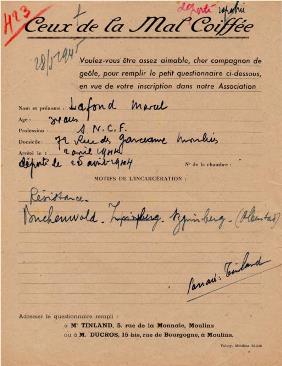 423
déporté rapatrié
Ceux de la Mal Coiffée
28/5 1945
Voulez-vous être assez aimable, cher compagnon de
geôle, pour remplir le petit questionnaire ci-dessous,
en vue de votre inscription dans notre Association
Nom et prénoms : Lafond Marcel
Age : ans
Profession S. N. C. F.
Domicile: 72 Rue de Moulins
Arrêté le : 2 avril 1944
déporté le 20 avril 1944 N° de la chambre :
MOTIFS DE L'INCARCÉRATION :
Résistance
Buchenwald.
Tinland
Adresser le questionnaire rempli :
à Mr TINLAND, 5, rue de la Monnaie, Moulins
ou à M. DUCROS, 15 bis, rue de Bourgogne, à Moulins.